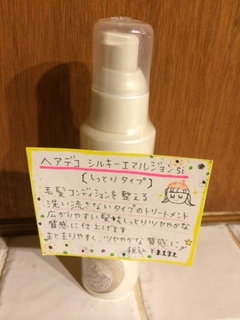 ヘアデコ シルキーエマルジョンSi
【しっとりタイプ】
毛髪コンディションを整える
洗い流さないタイプのトリートメント
広がりやすい髪もしっとりツヤやかな
質感に仕上げます
まとまりやすく、ツヤやかな質感に♪
税込¥3,132